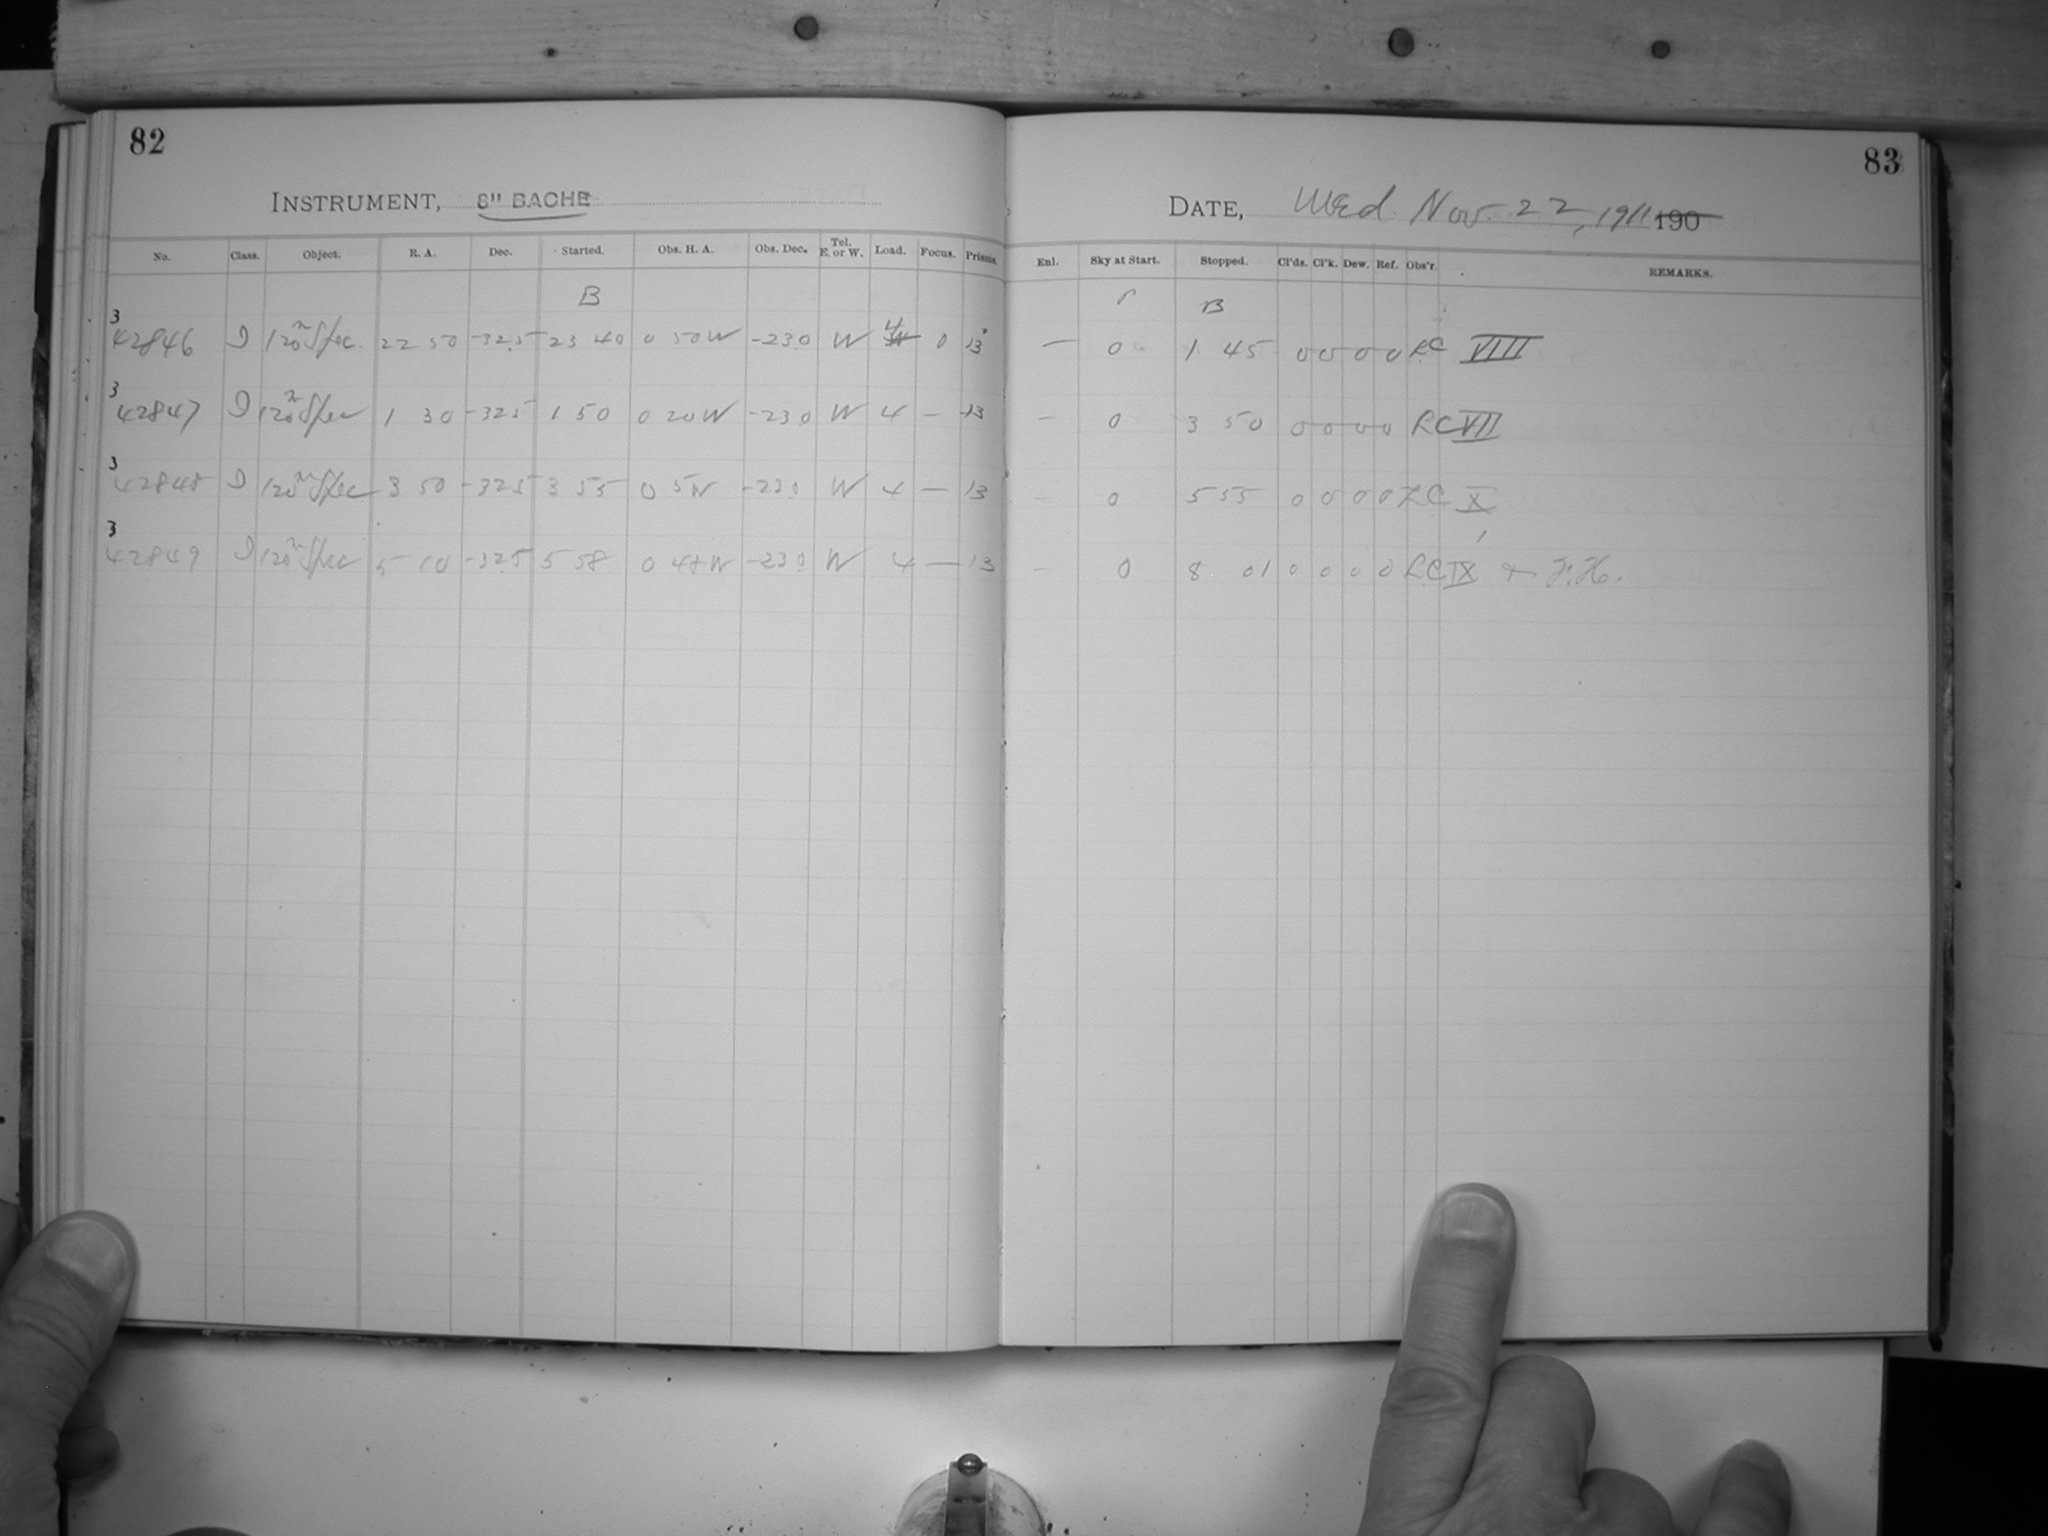 82
INSTRUMENT, 8" BACHE
No. Class. Object. R. A. Dec. Started. Obs. H. A. Obs. Dec. Tel. E. or W. Load. Focus. Prisms.
B
3
42846 D 120m Spec. 22 50 -32.5 23 40 0 50W -23.0 W 4 0 13
3
42847 D 120m Spec 1 30 -32.5 1 50 0 20W -23.0 W 4 — 13
3
42848 D 120m Spec 3 50 -32.5 3 55 0 5W -23.0 W 4 — 13
3
42849 D 120m Spec 5 10 -32.5 5 58 0 48W -23.0 W 4 — 13
83
DATE, Wed Nov. 22, 1911 190
Enl. Sky at Start. Stopped. Cl'ds. Cl'k. Dew. Ref. Obs'r. REMARKS.
r B
— 0 1 45 0 0 0 0 RC VIII
— 0 3 50 0 0 0 0 RC VII
— 0 5 55 0 0 0 0 RC X
— 0 8 01 0 0 0 0 RC IX + F.H.